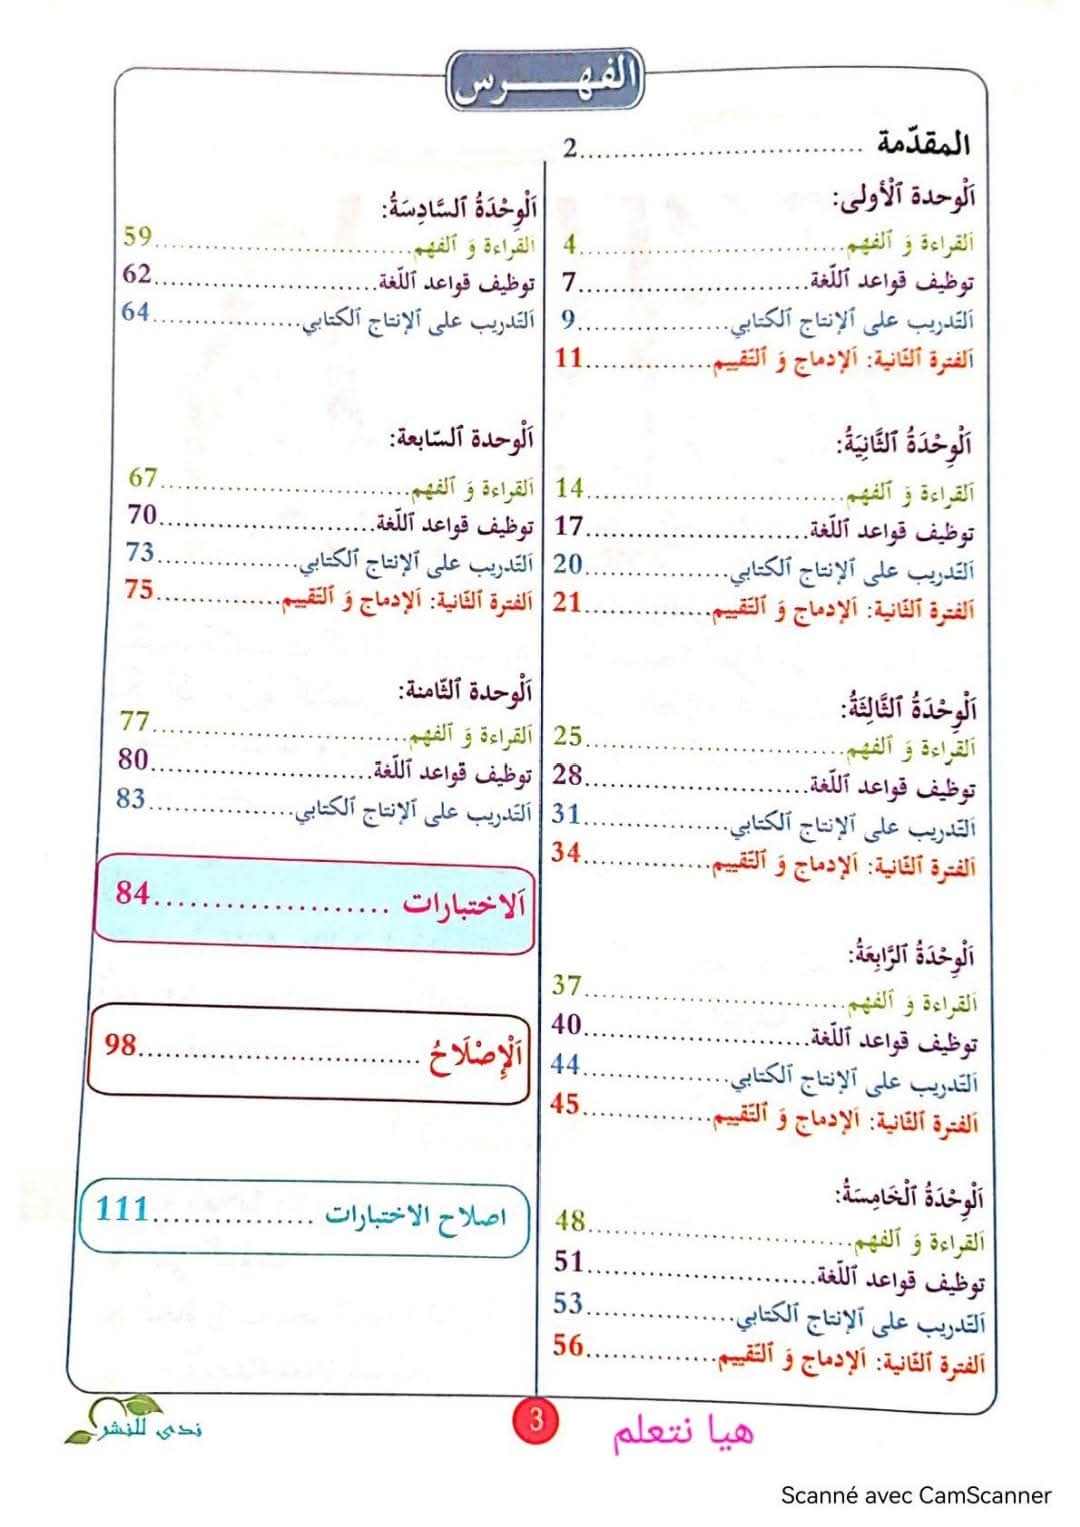 الفهرس
المقدّمة ........................................ 2
اَلْوحدة اَلْأولى:
اَلقراءة وَ اَلفهم........................................4
توظيف قواعد اَللّغة........................................7
اَلتّدريب على اَلإنتاج اَلكتابي........................................9
اَلفترة اَلثّانية: اَلإدماج وَ اَلتّقييم........................................11
اَلْوِحْدَةُ اَلثَّانِيَةُ:
اَلقراءة وَ اَلفهم........................................14
توظيف قواعد اَللّغة........................................17
اَلتّدريب على اَلإنتاج اَلكتابي........................................20
اَلفترة اَلثّانية: اَلإدماج وَ اَلتّقييم........................................21
اَلْوِحْدَةُ اَلثَّالِثَةُ:
اَلقراءة وَ اَلفهم........................................25
توظيف قواعد اَللّغة........................................28
اَلتّدريب على اَلإنتاج اَلكتابي........................................31
اَلفترة اَلثّانية: اَلإدماج وَ اَلتّقييم........................................34
اَلْوِحْدَةُ اَلرَّابِعَةُ:
اَلقراءة وَ اَلفهم........................................37
توظيف قواعد اَللّغة........................................40
اَلتّدريب على اَلإنتاج اَلكتابي........................................44
اَلفترة اَلثّانية: اَلإدماج وَ اَلتّقييم........................................45
اَلْوِحْدَةُ اَلْخَامِسَةُ:
اَلقراءة وَ اَلفهم........................................48
توظيف قواعد اَللّغة........................................51
اَلتّدريب على اَلإنتاج اَلكتابي........................................53
اَلفترة اَلثّانية: اَلإدماج وَ اَلتّقييم........................................56
اَلْوِحْدَةُ اَلسَّادِسَةُ:
اَلقراءة وَ اَلفهم........................................59
توظيف قواعد اَللّغة........................................62
اَلتّدريب على اَلإنتاج اَلكتابي........................................64
اَلْوحدة اَلسّابعة:
اَلقراءة وَ اَلفهم........................................67
توظيف قواعد اَللّغة........................................70
اَلتّدريب على اَلإنتاج اَلكتابي........................................73
اَلفترة اَلثّانية: اَلإدماج وَ اَلتّقييم........................................75
اَلْوحدة اَلثّامنة:
اَلقراءة وَ اَلفهم........................................77
توظيف قواعد اَللّغة........................................80
اَلتّدريب على اَلإنتاج اَلكتابي........................................83
اَلاختبارات ....................84
اَلْإِصْلَاحُ ........................98
اصلاح الاختبارات ................111
ندى للنشر
3
هيا نتعلم
Scanné avec CamScanner